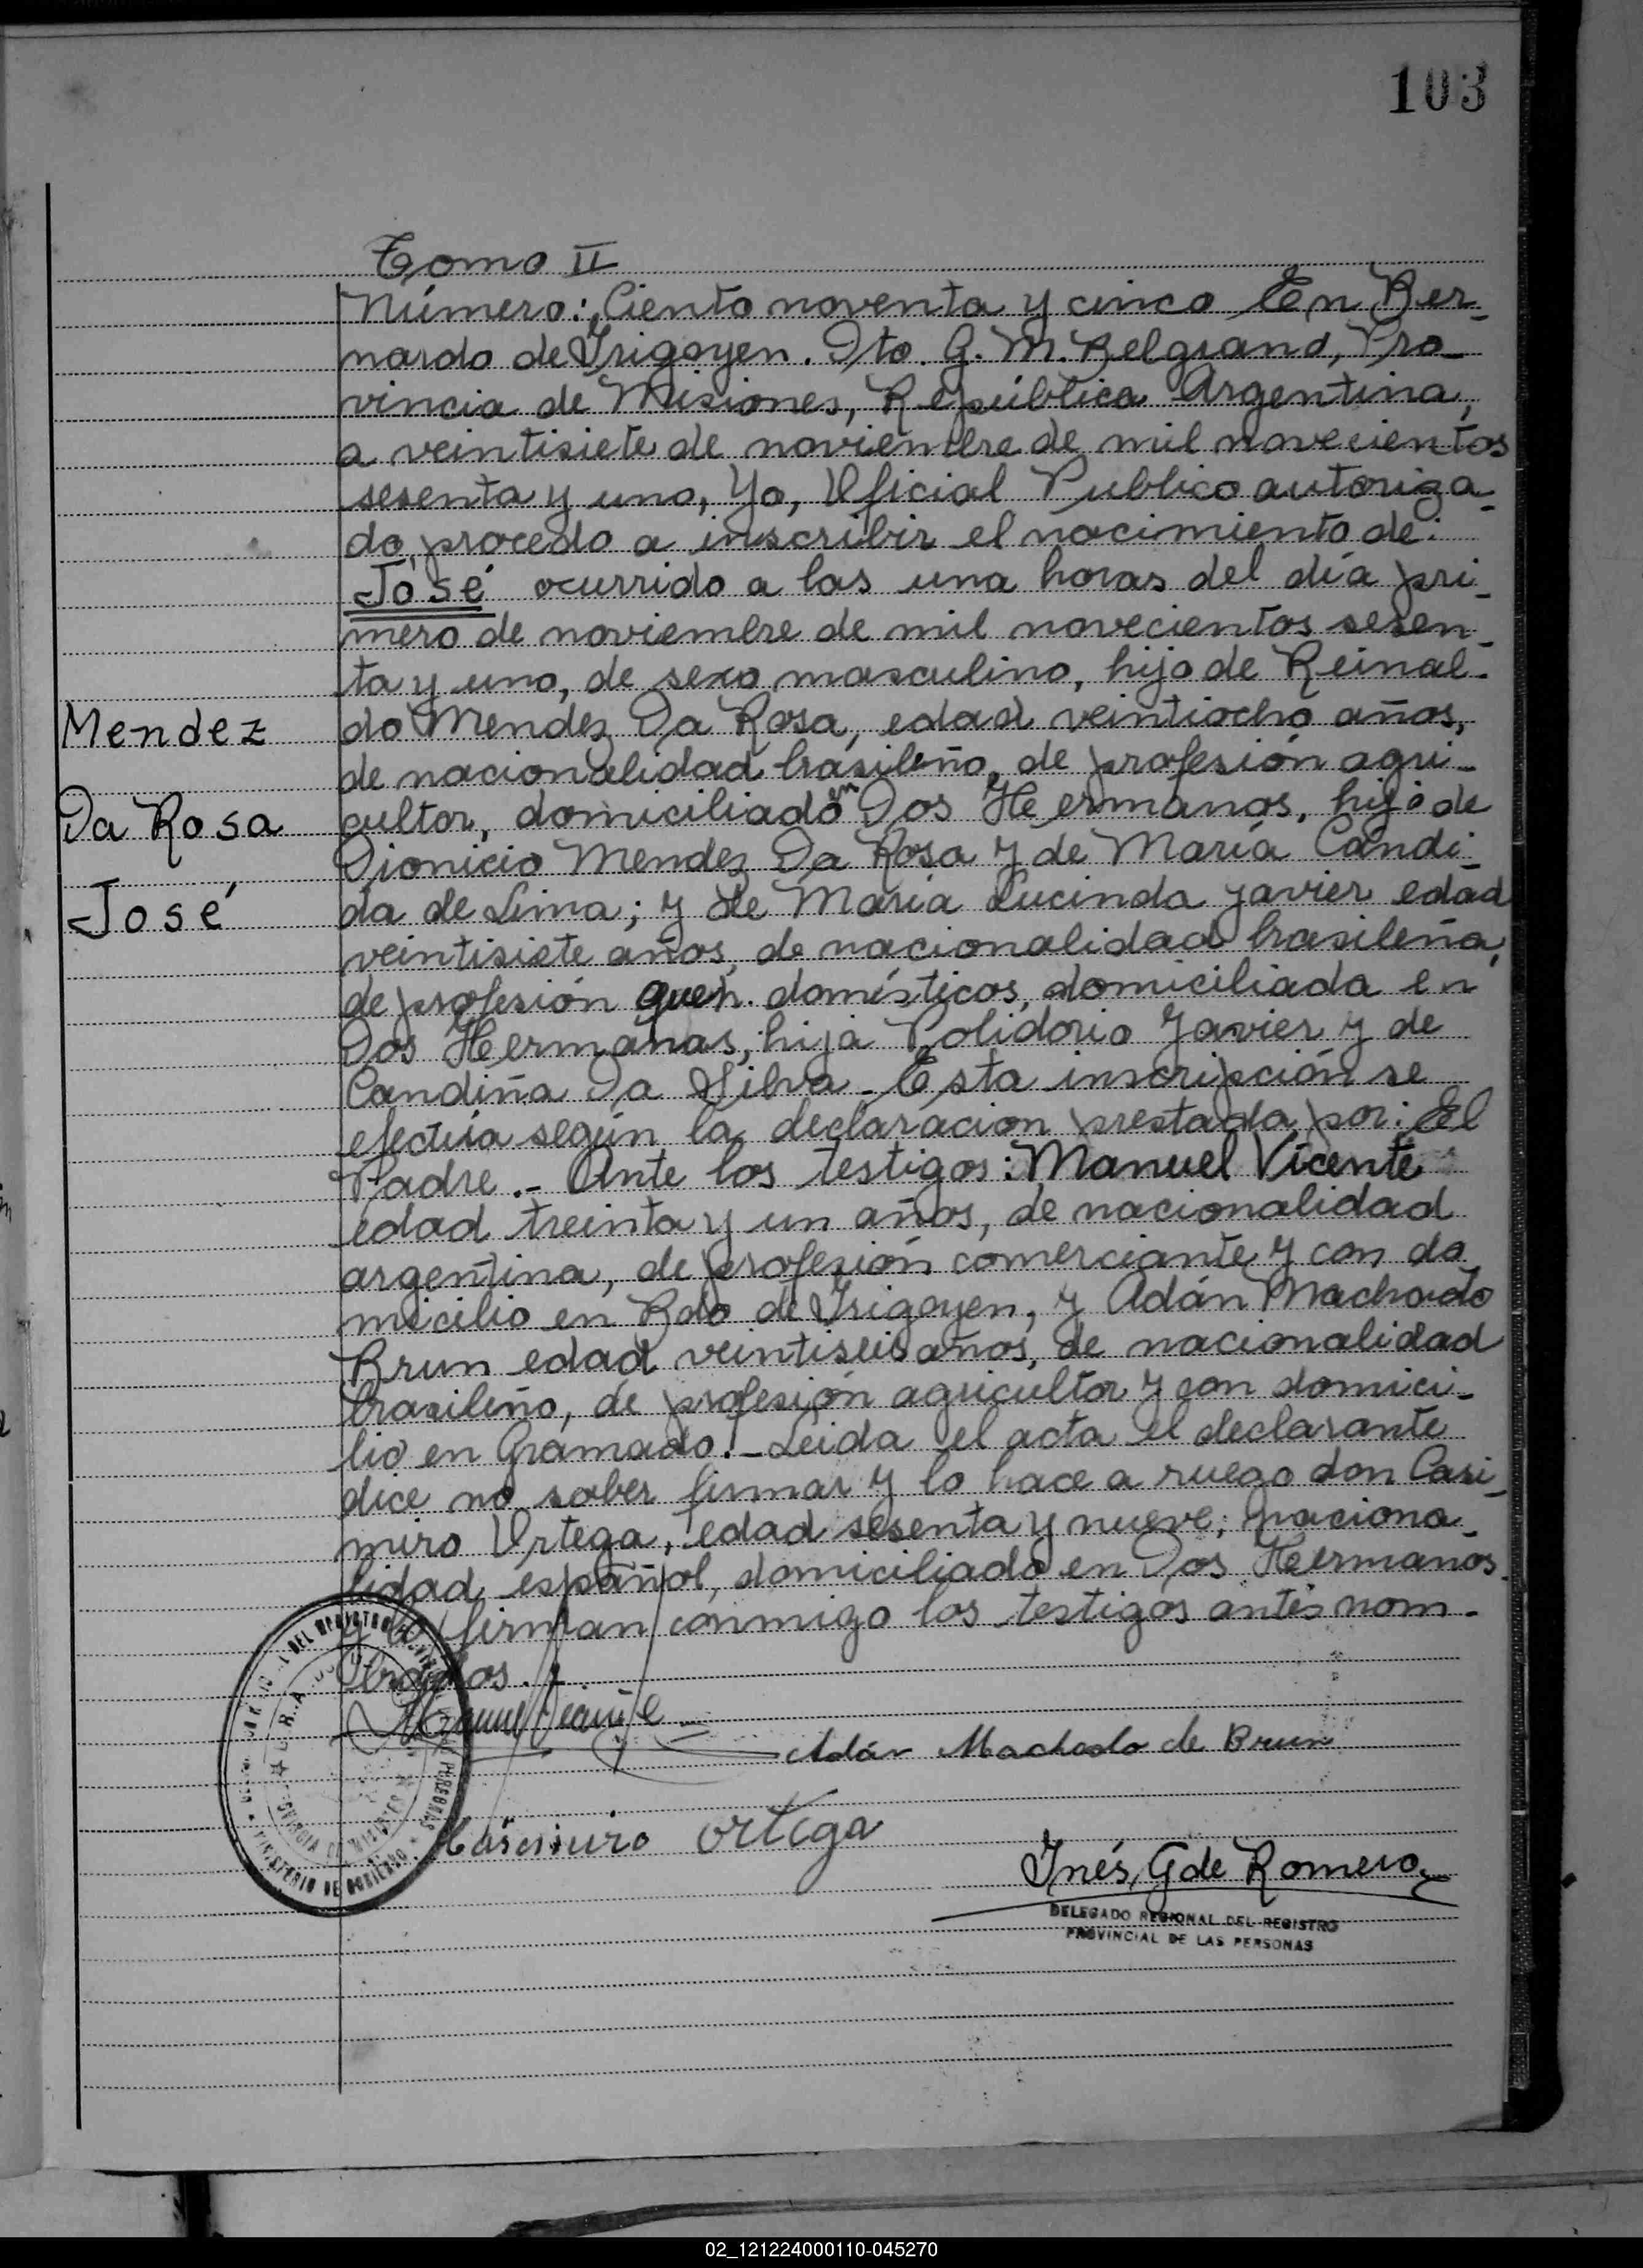 103
Tomo II
Número: Ciento noventa y cinco En Ber-
nardo de Irigoyen. Dto. G. M. Belgrano, Pro-
vincia de Misiones, República Argentina,
a veintisiete de noviembre de mil novecientos
sesenta y uno, Yo, Oficial Publico autoriza-
do, procedo a inscribir el nacimiento de:
José ocurrido a las una horas del día pri-
mero de noviembre de mil novecientos sesen-
ta y uno, de sexo masculino, hijo de Reinal-
Mendez
do Mendez Da Rosa, edad veintiocho años,
de nacionalidad brasileño, de profesión agri-
Da Rosa
cultor, domiciliado en Dos Hermanos, hijo de
Dionicio Mendez Da Rosa y de María Candi-
José
da de Lima; y de María Lucinda Javier edad
veintisiete años, de nacionalidad brasileña,
de profesión queh. domésticos, domiciliada en
Dos Hermanas, hija Polidorio Javier y de
Candiña Da Silva. Esta inscripción se
efectúa según la declaración prestada por: El
Padre.- Ante los testigos: Manuel Vicente
edad treinta y un años, de nacionalidad
argentina, de profesión comerciante y con do
micilio en Bdo de Irigoyen, y Adán Machado
Brun edad veintiseis años, de nacionalidad
brasileño, de profesión agricultor y con domici-
lio en Gramado.- Leida el acta el declarante
dice no saber firmar y lo hace a ruego don Casi-
miro Ortega, edad sesenta y nueve, naciona-
lidad español, domiciliado en Dos Hermanos.
y la firman conmigo los testigos antes nom-
brados.
Manuel Vicente
Adán Machado de Brun
Casimiro Ortega
Inés G de Romero
DELEGADO REGIONAL DEL REGISTRO
PROVINCIAL DE LAS PERSONAS
DEL REGISTRO
MINISTERIO DE GOBIERNO
02_121224000110-045270